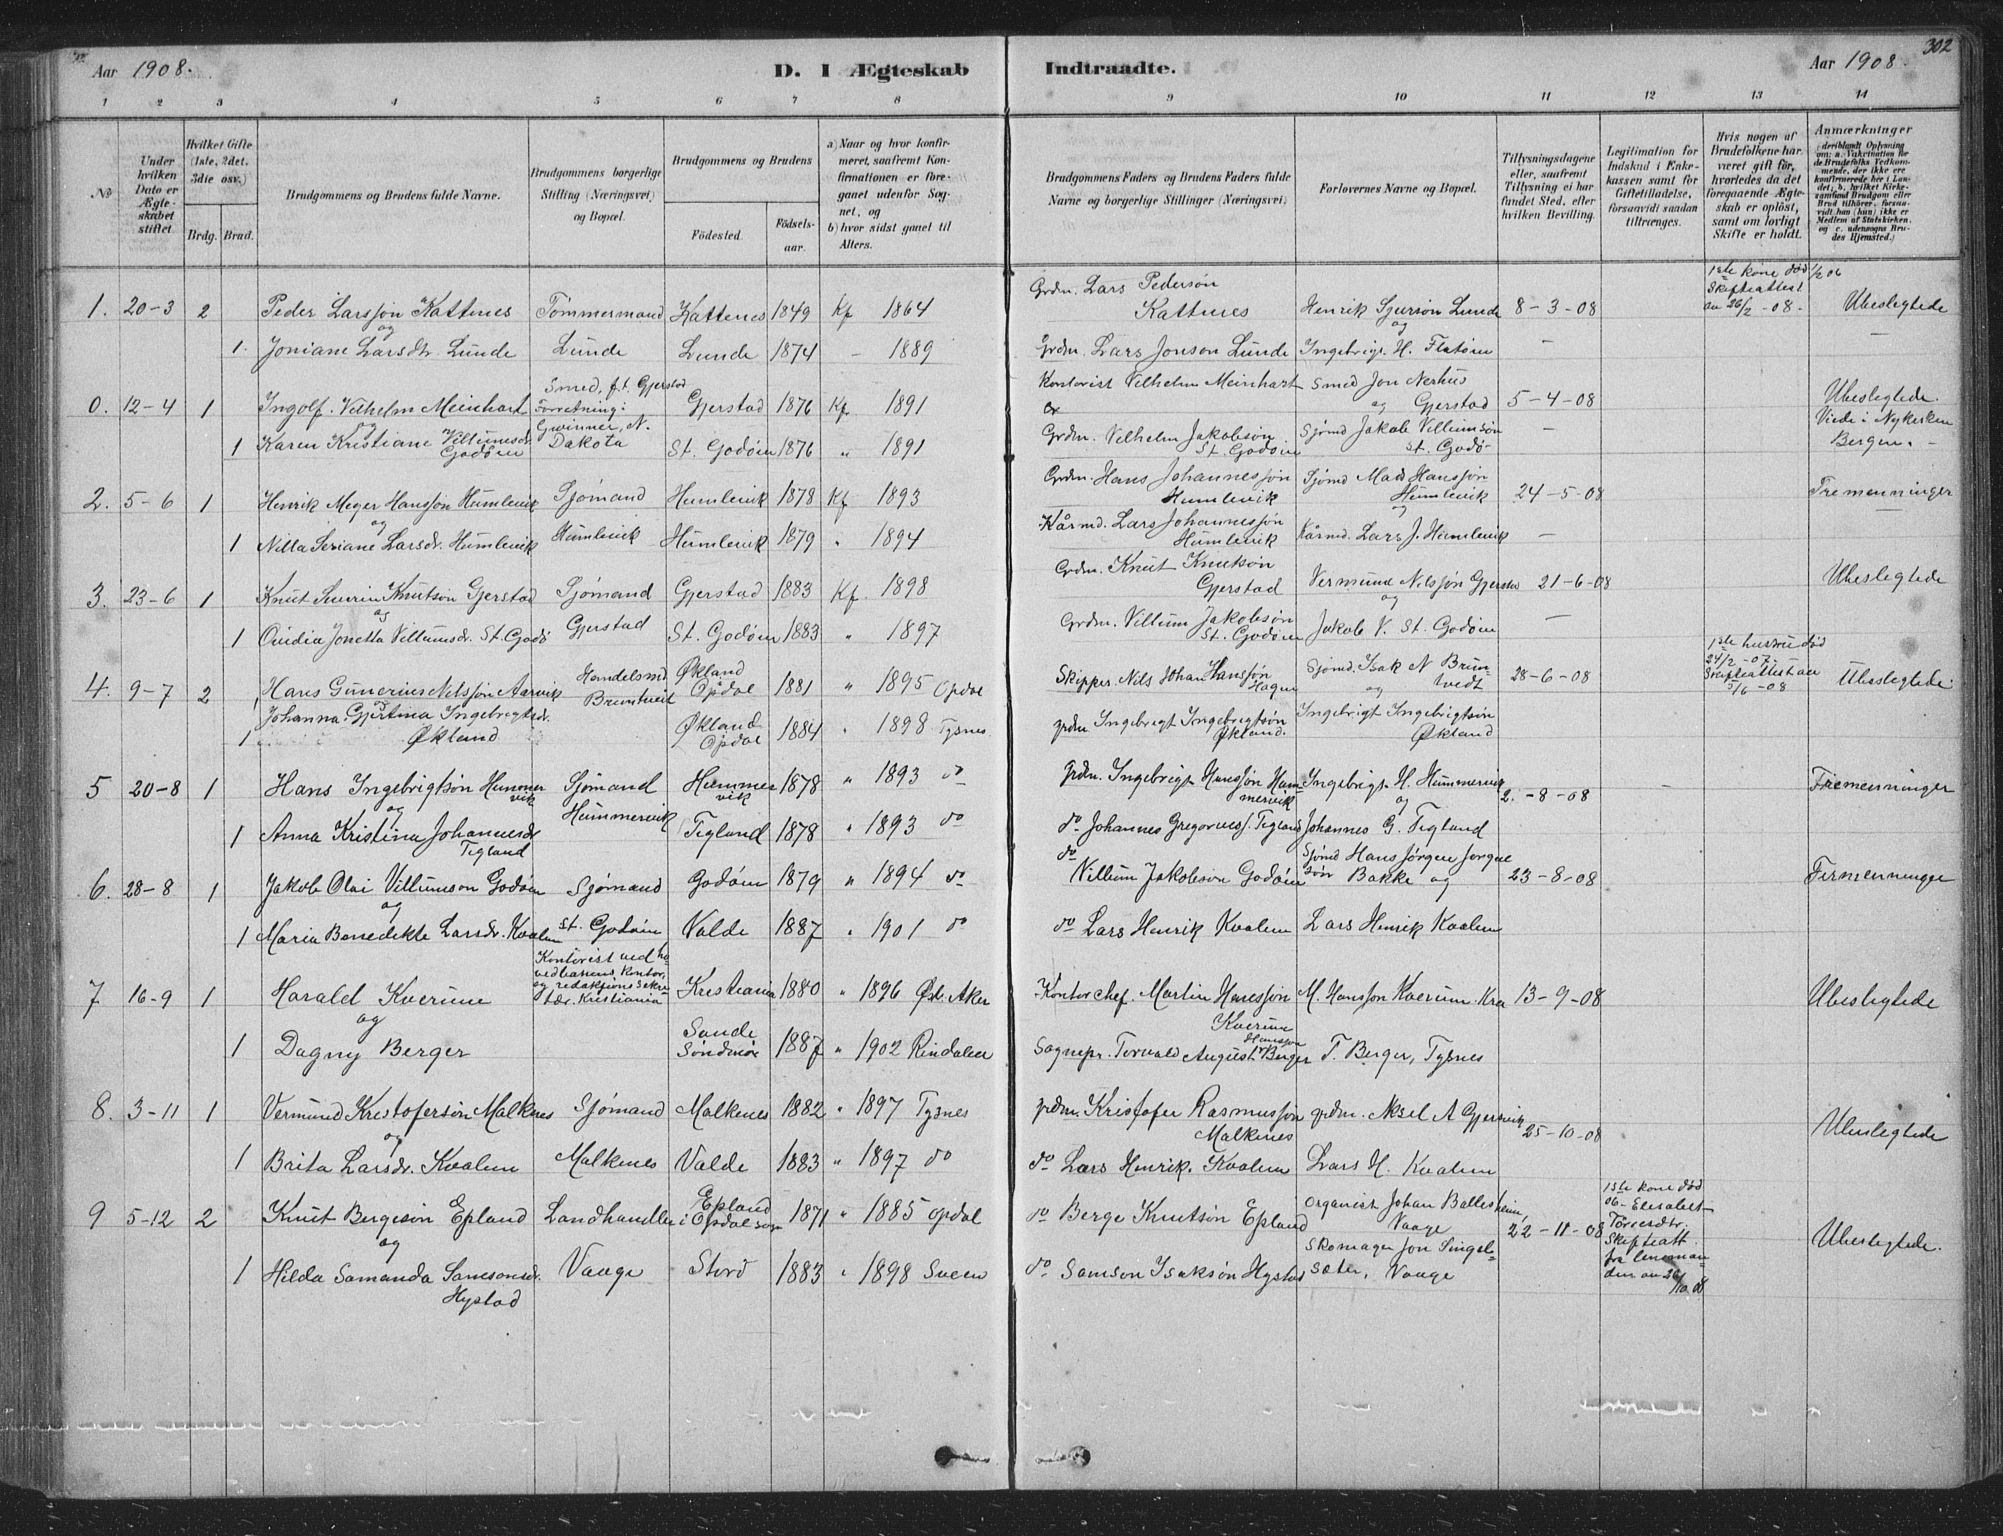 Aar 1908.
D. I Ægteskab Indtraadte.
Aar 1908.
302
1 2 3 4 5 6 7 8 9 10 11 12 13 14
No
Under hvilken Dato er Ægteskabet stiftet.
Hvilket Gifte (1ste, 2det, 3die osv.)
Brdg. Brud.
Brudgommens og Brudens fulde Navne.
Brudgommens borgerlige Stilling (Næringsvei) og Bopæl.
Brudgommens og Brudens
Fødested. Fødselsaar.
a) Naar og hvor konfirmeret, saafremt Konfirmationen er foregaaet udenfor Sognet, og
b) hvor sidst gaaet til Alters.
Brudgommens Faders og Brudens Faders fulde Navne og borgerlige Stillinger (Næringsvei)
Forlovernes Navne og Bopæl.
Tillysningsdagene eller, saafremt Tillysning ei har fundet Sted, efter hvilken Bevilling.
Legitimation for Indskud i Enkekassen samt for Giftetilladelse, forsaavidt saadan tiltrænges.
Hvis nogen af Brudefolkene har været gift før, hvorledes da det foregaaende Ægteskab er opløst, samt om lovligt Skifte er holdt.
Anmærkninger (deriblandt Oplysning om: a. Vakcination for de Brudefolks Vedkommende, der ikke ere konfirmerede her i Landet; b. hvilket Kirkesamfund Brudgom eller Brud tilhører, forsaavidt han (hun) ikke er Medlem af Statskirken, og c. udensogns Brudes Hjemsted.)
1. 20-3 2 Peder Larssøn Kattnes Tømmermand Kattenes 1849 Kf 1864 Grdm. Lars Pedersøn Kattnes Henrik Sjursøn Lunde 8-3-08 1ste kone død 1/2 06 Skifteattest av 26/2-08. Ubeslegtede
og
1. Joniane Larsdtr. Lunde Lunde Lunde 1874 - 1889 Grdm. Lars Jonson Lunde og Ingebrigt H. Flatøen -
0. 12-4 1 Ingolf Vilhelm Meinhart Smed, f.t. Gjerstad Forretning: Gwinner, N. Dakota Gjerstad 1876 Kf 1891 Kontorist Vilhelm Meinhart Smed Jon Nerhus og Gjerstad 5-4-08 Ubeslegtede. Viede i Nykirken Bergen.
og
1 Karen Kristiane Villumsdr. Godøen St. Godøen 1876 " 1891 Grdm. Vilhelm Jakobsøn St. Godøen Sjømd Jakob Villumsøn St. Godø -
2. 5-6 1 Henrik Meyer Hanssøn Humlevik Sjømand Humlevik 1878 Kf 1893 Grdm. Hans Johannessøn Humlevik Sjømd Mads Hanssøn Humlevik 24-5-08 Tremenninger
og
1 Nilla Seriane Larsdr. Humlevik Humlevik Humlevik 1879 " 1894 Kårmd. Lars Johannessøn Humlevik og Kårmd. Lars J. Humlevik -
3. 23-6 1 Knut Severin Knutsøn Gjerstad Sjømand Gjerstad 1883 Kf. 1898 Grdm. Knut Knutsøn Gjerstad Vermund Nilssøn Gjerstad 21-6-08 Ubeslegtede
og
1 Ovidia Jonetta Villumsdr. St. Godø Gjerstad St. Godøen 1883 " 1897 Grdm. Villum Jakobsøn St. Godøen og Jakob V. St. Godøen -
4. 9-7 2 Hans Gunerius Nilssøn Aarvik Handelsmd Bruntveit Økland Opdal 1881 " 1895 Opdal Skipper Nils Johan Hanssøn Hagen Sjømd. Isak N Bruntvedt 28-6-08 1ste hustru død 24/2-07. Skifteattest av 5/6-08 Ubeslegtede.
1 Johanna Gjertina Ingebrigtsdr. Økland Økland Opdal 1884 " 1898 Tysnes grdm. Ingebrigt Ingebrigtsøn Økland. og Ingebrigt Ingebrigtsøn Økland
5 20-8 1 Hans Ingebrigtsøn Hummervik Sjømand Hummervik 1878 " 1893 do grdm. Ingebrigt Hanssøn Hummervik Ingebrigt H. Hummervik 2-8-08 Firmenninger
og
1 Anna Kristina Johannesdr Tegland Hummervik Tegland 1878 " 1893 do do Johannes Gregoriuss. Tegland og Johannes G. Tegland
6. 28-8 1 Jakob Olai Villumson Godøen Sjømand Godøen 1879 " 1894 do do Villum Jakobson Godøen Sjømd Hans Jørgen Jørgensøn Bakke og 23-8-08 Firmenninge
og
1 Maria Benedikte Larsdr. Kvalem St. Godøen Valde 1887 " 1901 do do Lars Henrik Kvalem Lars Henrik Kvalem
7 16-9 1 Harald Kverum Kontorist ved hovedbanens kontor, og redaktionssekretær Kristiania Kristiania 1880 " 1896 Øst. Aker Kontorchef. Martin Hanssøn Kverum M. Hanssøn Kverum. Kra 13-9-08 Ubeslegtede
og
1 Dagny Berger Sande Søndmør 1887 " 1902 Rindalen Sognepr. Torvald August Hansson Berger T. Berger, Tysnes
8. 3-11 1 Vermund Kristofersøn Malkenes Sjømand Malkenes 1882 " 1897 Tysnes grdm. Kristofer Rasmussøn Malkenes grdm. Aksel A Gjersvik 25-10-08 Ubeslegtede
og
1 Brita Larsdr. Kvalem Malkenes Valde 1883 " 1897 do do Lars Henrik Kvalem Lars H. Kvalem
9 5-12 2 Knut Bergesøn Epland Landhandler Epland i Opdal sogn 1871 " 1885 Opdal do Berge Knutsøn Epland Organist Johan Ballesheim, Vaage 22-11-08 1ste kone død 06- Elisabet Tørresdtr. Skifteatt. fra lensmanden av 26/10 08 Ubeslegtede.
og
1 Hilda Samanda Samsonsdr. Hystad Vaage Stord 1883 " 1898 Sveen do Samson Isaksøn Hystad Skomager Jon Singelsæter, Vaage